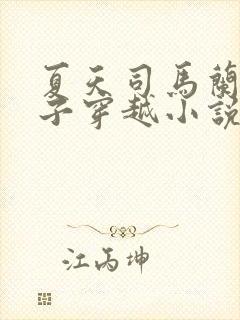 夏天司馬蘭
子穿越小說
江丙坤